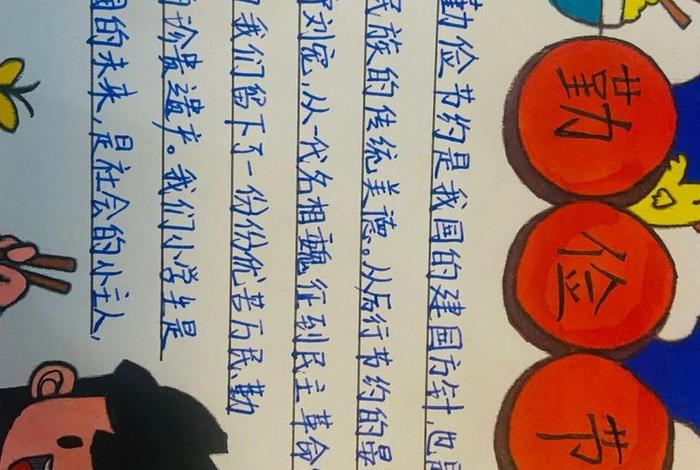 勤俭节
勤俭节约是我国的建国方针,也是
民族的传统美德。从厉行节约的晏
刘宽,从一代名相魏征到民主革命
我们留下了一份份忧苦万民勤
的珍贵遗产。我们小学生是
国的未来,是社会的小主人,